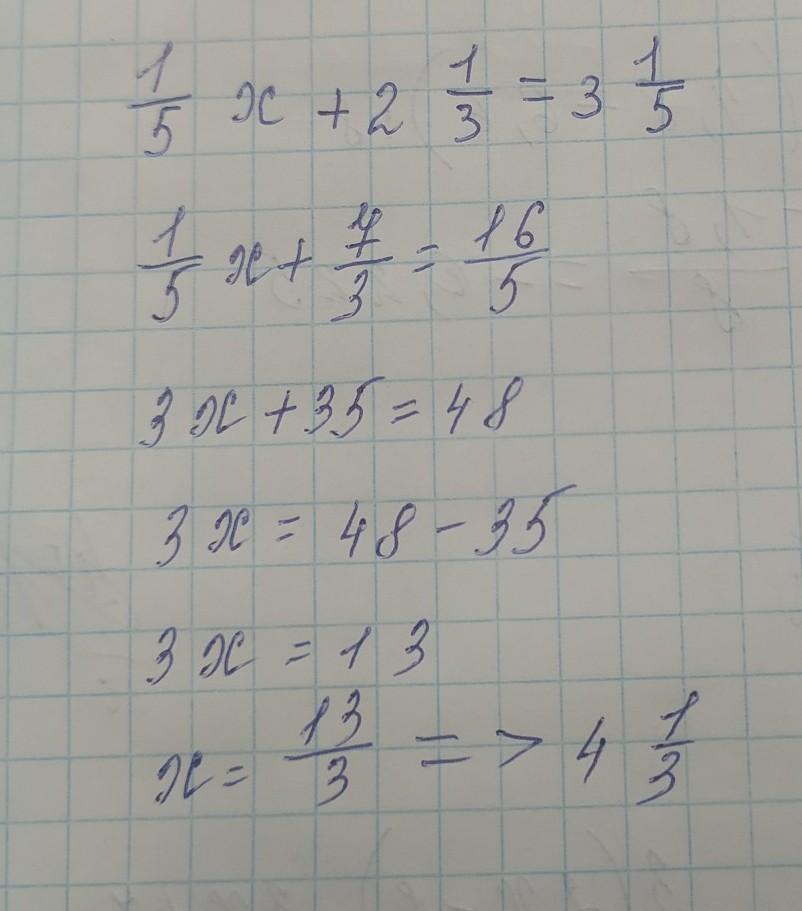 1/5 x + 2 1/3 = 3 1/5
1/5 x + 7/3 = 16/5
3x + 35 = 48
3x = 48 - 35
3x = 13
x = 13/3 => 4 1/3